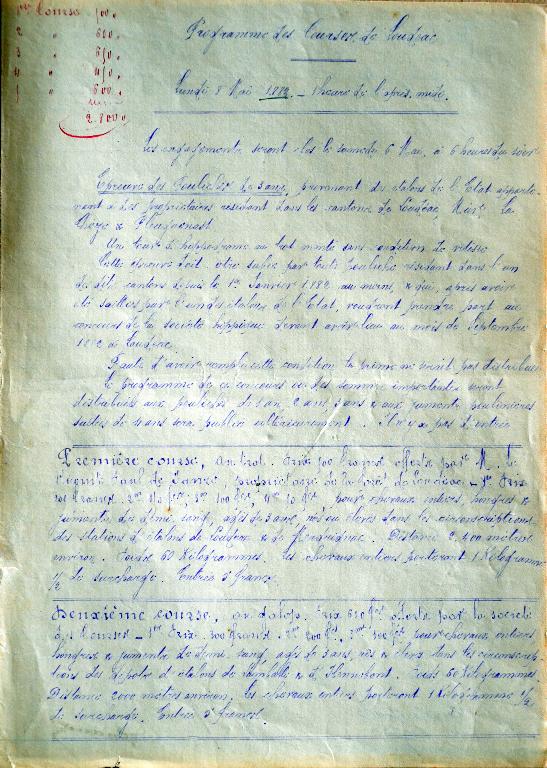 1ère Course 500 "
2 " 650 "
3 " 650 "
4 " 450 "
5 " 600 "
2.800 "
Programme des Courses de Loudéac
Lundi 8 Mai 1882 - 1 heure de l'après-midi.
Les engagements seront clos le samedi 6 Mai, à 6 heures du soir
Epreuve des Pouliches de 3 ans, provenant des étalons de l'Etat apparte-
nant à des propriétaires résidant dans les cantons de Loudéac, Mûr, La
Chèze & Plouguenast
Un tour d'hippodrome au trot monté sans condition de vitesse
Cette épreuve doit être subie par toute pouliche résidant dans l'un
des dits cantons depuis le 1er Janvier 1882 au moins, & qui, après avoir
été saillies par l'un des étalons de l'Etat, voudront prendre part au
concours de la société hippique devant avoir lieu au mois de Septembre
1882 à Loudéac.
Faute d'avoir rempli cette condition la prime ne serait pas distribuée
Le programme de ce concours où des sommes importantes seront
distribuées aux pouliches de 1 an, 2 ans, 3 ans & aux juments poulinières
suitées de 4 ans sera publié ultérieurement. Il n'y a pas d'entrée
Première course, au trot. Prix 500 francs offerts par M. le
Vicomte Paul de Janzé, propriétaire de la forêt de Loudéac - 1er Prix
francs, 2me 150 frs, 3me 100 frs, 4me 50 frs. pour chevaux entiers, hongres &
juments de demi-sang, agés de 3 ans, nés ou élevés dans les circonscriptions
des stations d'étalons de Loudéac & de Merdrignac. Distance 2,400 mètres
environ. Poids 60 Kilogrammes. Les chevaux entiers porteront 1 Kilogramme
1/2 de surcharge. Entrée 5 francs.
Deuxième course, au galop. Prix 650 frs offerts par la société
des Courses - 1er Prix 300 francs, 2me 200 frs, 3me 100 frs pour chevaux entiers,
hongres & juments de demi-sang, agés de 3 ans, nés & élevés dans les circonscrip-
tions des dépôts d'étalons de Lamballe & d'Hennebont. Poids 60 Kilogrammes
Distance 2000 mètres environ. Les chevaux entiers porteront 1 Kilogramme 1/2
de surcharge. Entrée 5 francs.